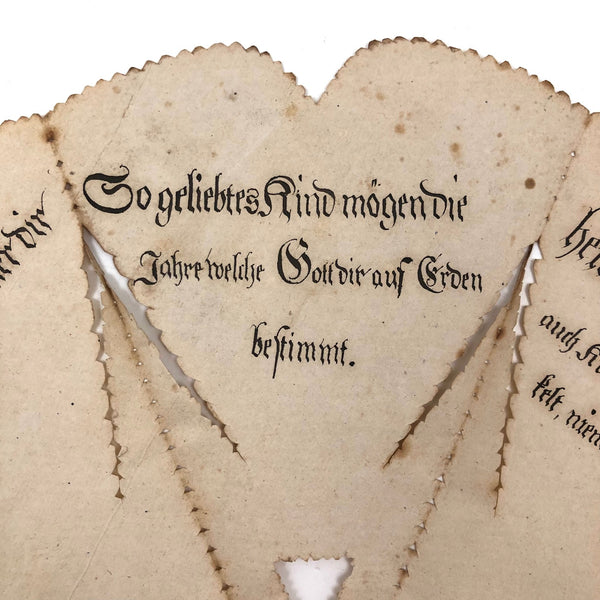 So geliebtes Kind mögen die
Jahre welche Gott dir auf Erden
bestimmt.
die
auch
kelt, niem